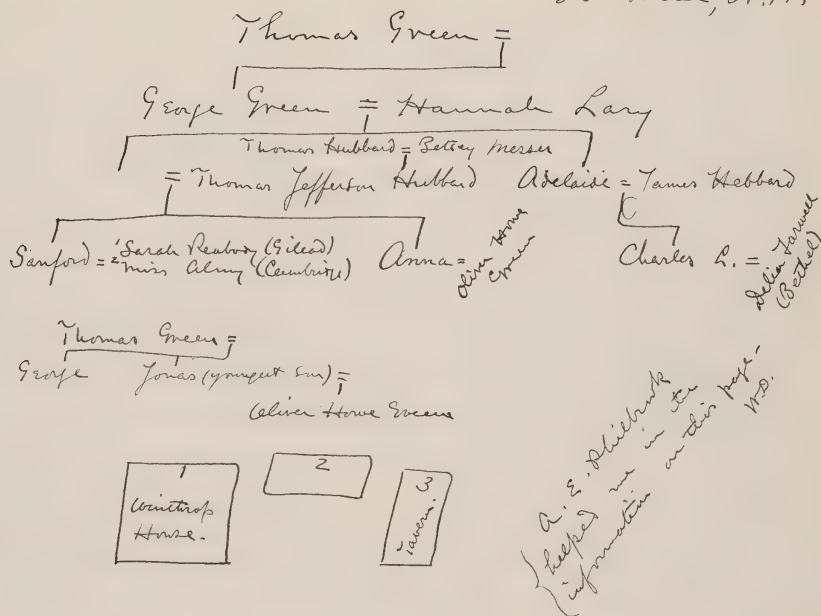 Thomas Green =
George Green = Hannah Lary
Thomas Hubbard = Betsey Messer
= Thomas Jefferson Hubbard Adelaide = James Hebbard
Sanford = 1 Sarah Peabody (Gilead)
2 Miss Almy (Cambridge)
Anna =
Oliver Howe
Green
Charles L. =
Delia Farwell
(Bethel)
Thomas Green =
George Jonas (youngest son) =
Oliver Howe Greene
1
Winthrop
House.
2
Tavern. 3
A. E. Philbrook
helped me in the
information on this page -
W.D.